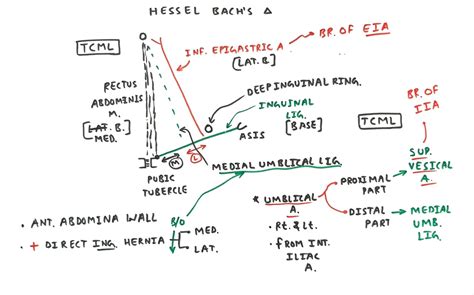 HESSEL BACH'S Δ
TCML
INF. EPIGASTRIC A
[LAT. B.]
BR. OF EIA
RECTUS
ABDOMINIS
M.
[LAT. B.]
MED.
DEEP INGUINAL RING.
INGUINAL
LIG.
[BASE]
ASIS
TCML
BR. OF
IIA
M
L
PUBIC
TUBERCLE
MEDIAL UMBLICAL LIG.
SUP.
VESICAL
A.
* UMBLICAL
A.
PROXIMAL
PART
DISTAL
PART
MEDIAL
UMB.
LIG.
• Rt. & Lt.
• FROM INT.
ILIAC
A.
• ANT. ABDOMINA WALL
B/O
• + DIRECT ING. HERNIA
MED.
LAT.